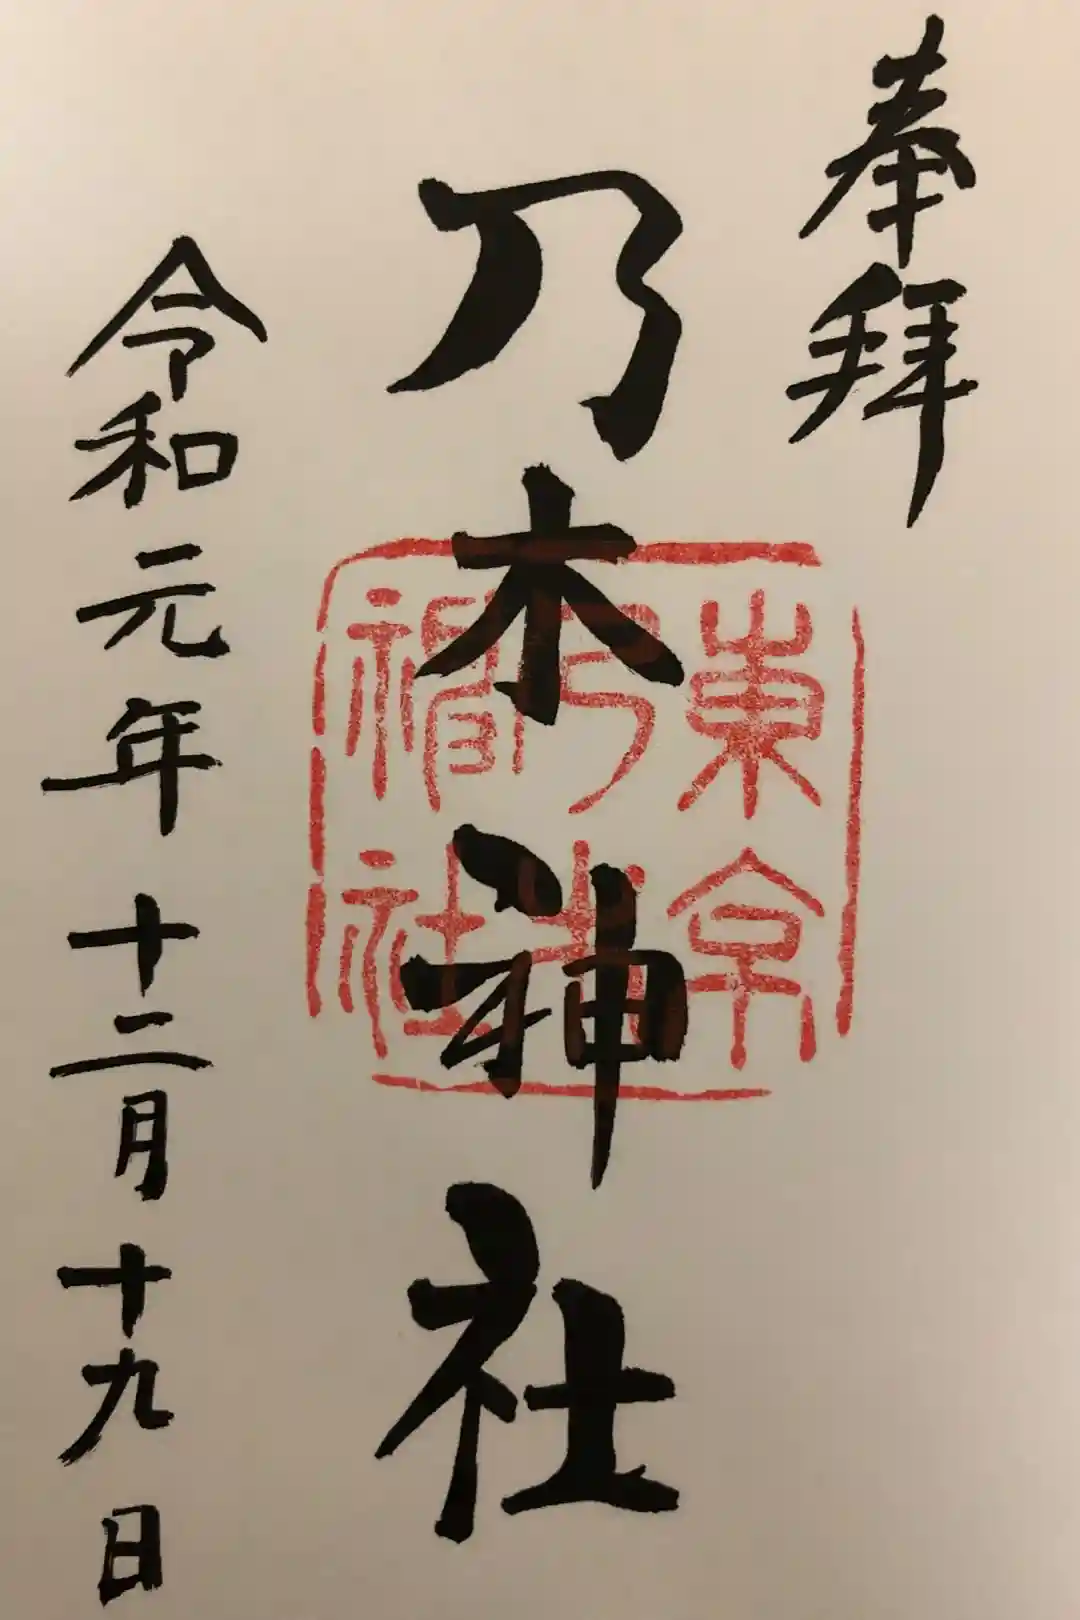 奉拜
乃木神社
東京
乃木
神社
令和元年十二月十九日